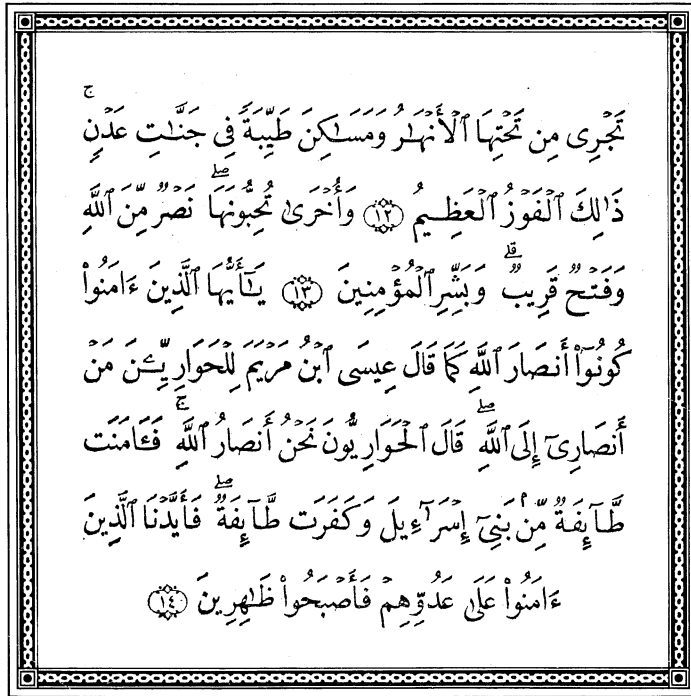 تَجْرِى مِن تَحْتِهَا ٱلْأَنْهَـٰرُ وَمَسَـٰكِنَ طَيِّبَةً فِى جَنَّـٰتِ عَدْنٍ ۚ
ذَٰلِكَ ٱلْفَوْزُ ٱلْعَظِيمُ ١٢ وَأُخْرَىٰ تُحِبُّونَهَا ۖ نَصْرٌ مِّنَ ٱللَّهِ
وَفَتْحٌ قَرِيبٌ ۗ وَبَشِّرِ ٱلْمُؤْمِنِينَ ١٣ يَـٰٓأَيُّهَا ٱلَّذِينَ ءَامَنُوا۟
كُونُوٓا۟ أَنصَارَ ٱللَّهِ كَمَا قَالَ عِيسَى ٱبْنُ مَرْيَمَ لِلْحَوَارِيِّـۧنَ مَنْ
أَنصَارِىٓ إِلَى ٱللَّهِ ۖ قَالَ ٱلْحَوَارِيُّونَ نَحْنُ أَنصَارُ ٱللَّهِ ۚ فَـَٔامَنَت
طَّآئِفَةٌ مِّنۢ بَنِىٓ إِسْرَٰٓءِيلَ وَكَفَرَت طَّآئِفَةٌ ۖ فَأَيَّدْنَا ٱلَّذِينَ
ءَامَنُوا۟ عَلَىٰ عَدُوِّهِمْ فَأَصْبَحُوا۟ ظَـٰهِرِينَ ١٤